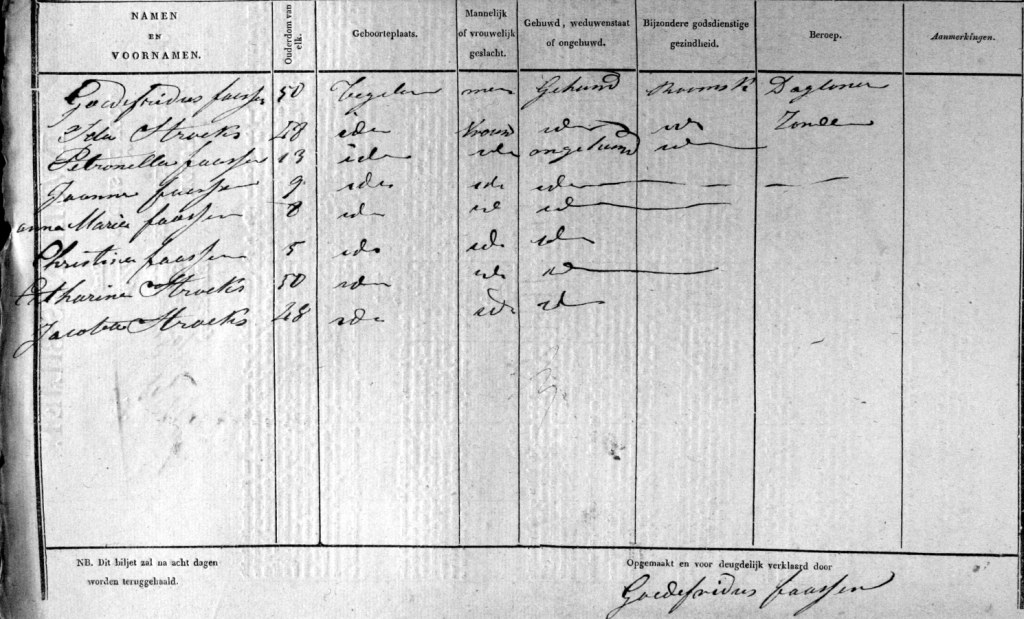 NAMEN EN VOORNAMEN. Ouderdom van elk. Geboorteplaats. Mannelijk of vrouwelijk geslacht. Gehuwd, weduwenstaat of ongehuwd. Bijzondere godsdienstige gezindheid. Beroep. Aanmerkingen.
Goedefridus faassen 50 Tegelen man Gehuud Rooms K Dagloner
Ida Stroeks 48 idem Vrouw idem id Zonde
Petronella faassen 13 idem idem ongehuud idem
Joanna faassen 9 idem idem idem
anna Maria faassen 8 idem id idem
Christina faassen 5 idem idem idem
Catharina Stroeks 50 idem idem idem
Jacoba Stroeks 48 idem idem idem
NB. Dit biljet zal na acht dagen
worden teruggehaald.
Opgemaakt en voor deugdelijk verklaard door
Goedefridus faassen